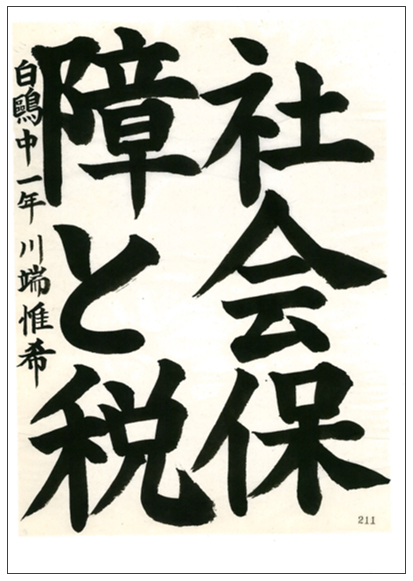 社会保
障と税
白鷗中一年 川端惟希
211